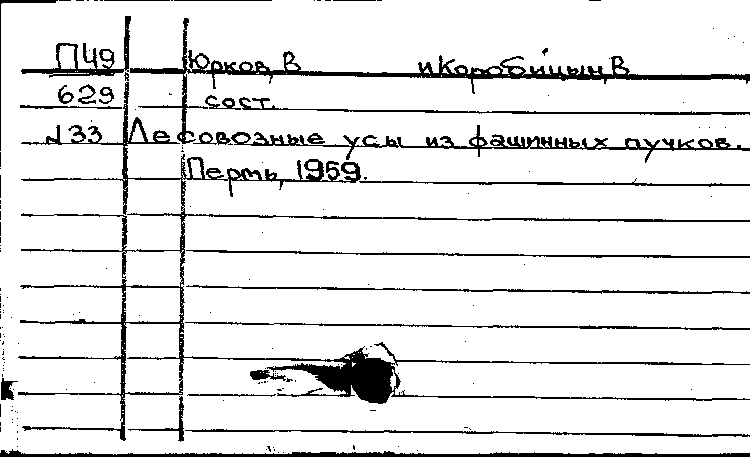 П49 Юрков, В и Коробицын, В
629 сост.
№33 Лесовозные усы из фашинных пучков.
Пермь, 1959.